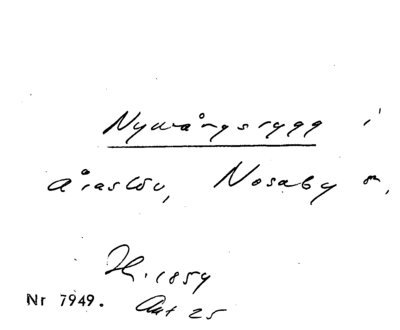 Nymångsrygg i
Åraslöv, Nosaby sn,
Hl. 1859
Nr 7949. Akt 25